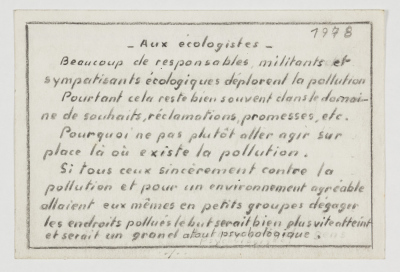 1978
- Aux écologistes -
Beaucoup de responsables, militants et
sympatisants écologiques déplorent la pollution
Pourtant cela reste bien souvent dans le domai-
ne de souhaits, réclamations, promesses, etc.
Pourquoi ne pas plutôt aller agir sur
place là où existe la pollution.
Si tous ceux sincèrement contre la
pollution et pour un environnement agréable
allaient eux mêmes en petits groupes dégager
les endroits pollués le but serait bien plus vite atteint
et serait un grand atout psychologique.